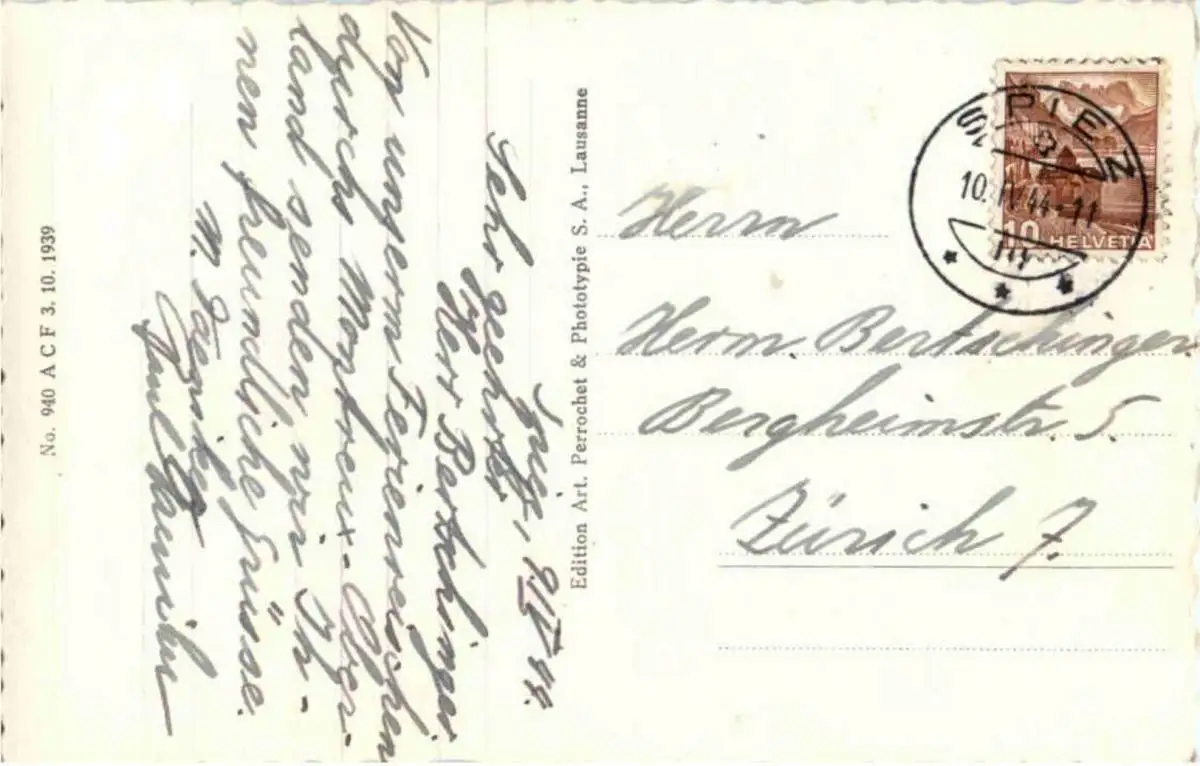 Spiez, 9. IV 44.
Sehr geehrter
Herr Bertschinger
Von unserm Ferienreischen
durchs Montreux-Ober-
land senden wir Ih-
nen freundliche Grüsse.
M.
Paul
No. 940 A C F 3. 10. 1939
Edition Art. Perrochet & Phototypie S. A., Lausanne
SPIEZ
10. IV. 44-11
10 HELVETIA
Herrn
Herm. Bertschinger
Bergheimstr. 5.
Zürich 7.